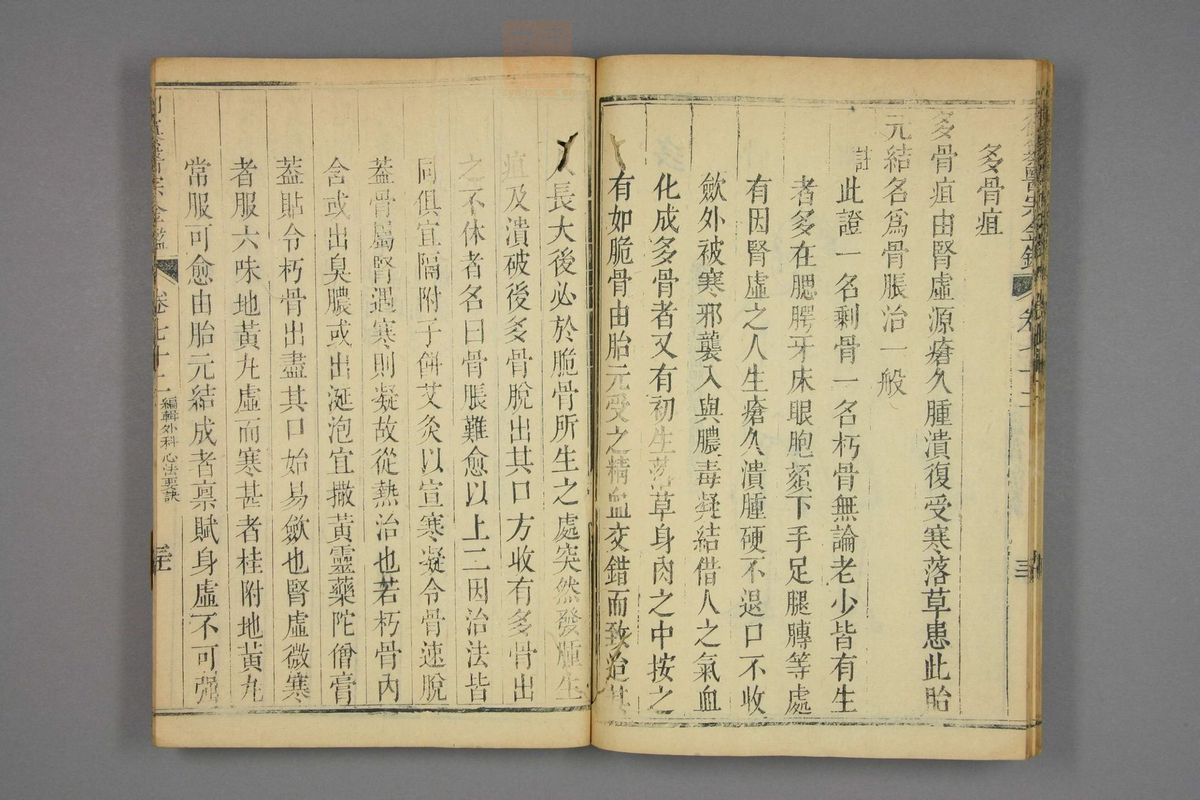 多骨疽
多骨疽由腎虛源瘡久腫潰復受寒落草患此胎
元結名爲骨脹治一般
註
此證一名剩骨一名朽骨無論老少皆有生
者多在腮腭牙床眼胞頦下手足腿膊等處
有因腎虛之人生瘡久潰腫硬不退口不收
歛外被寒邪襲入與膿毒凝結借人之氣血
化成多骨者又有初生落草身肉之中按之
有如脆骨由胎元受之精血交錯而致迨其
人長大後必於脆骨所生之處突然發腫生
疽及潰破後多骨脫出其口方收有多骨出
之不休者名曰骨脹難愈以上二因治法皆
同俱宜隔附子餅艾灸以宣寒凝令骨速脫
蓋骨屬腎遇寒則凝故從熱治也若朽骨內
含或出臭膿或出涎泡宜撒黃靈藥陀僧膏
蓋貼令朽骨出盡其口始易歛也腎虛微寒
者服六味地黃丸虛而寒甚者桂附地黃丸
常服可愈由胎元結成者禀賦身虛不可强
宗金鑑
卷七十二
編輯外科心法要訣